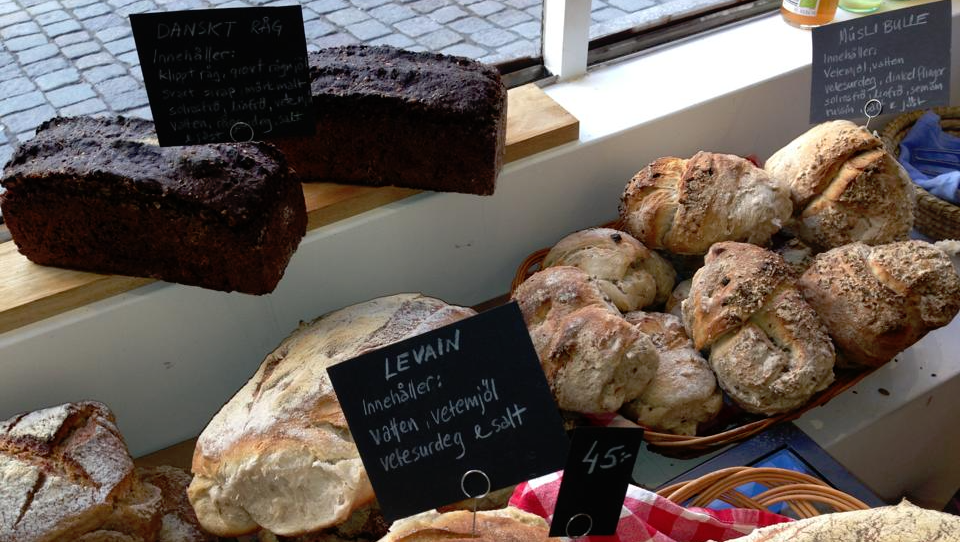 DANSKT RÅG
Innehåller:
Klippt råg, grovt rågmjöl
svart sirap, mörk malt
solrosfrö, linfrö, vetemjöl
vatten, surdeg, salt
& jäst
MÜSLI BULLE
Innehåller:
Vetemjöl, vatten
vetesurdeg, dinkelflingor
solrosfrö, linfrö, sesam
russin, salt & jäst
LEVAIN
Innehåller:
vatten, vetemjöl
vetesurdeg & salt
45:-